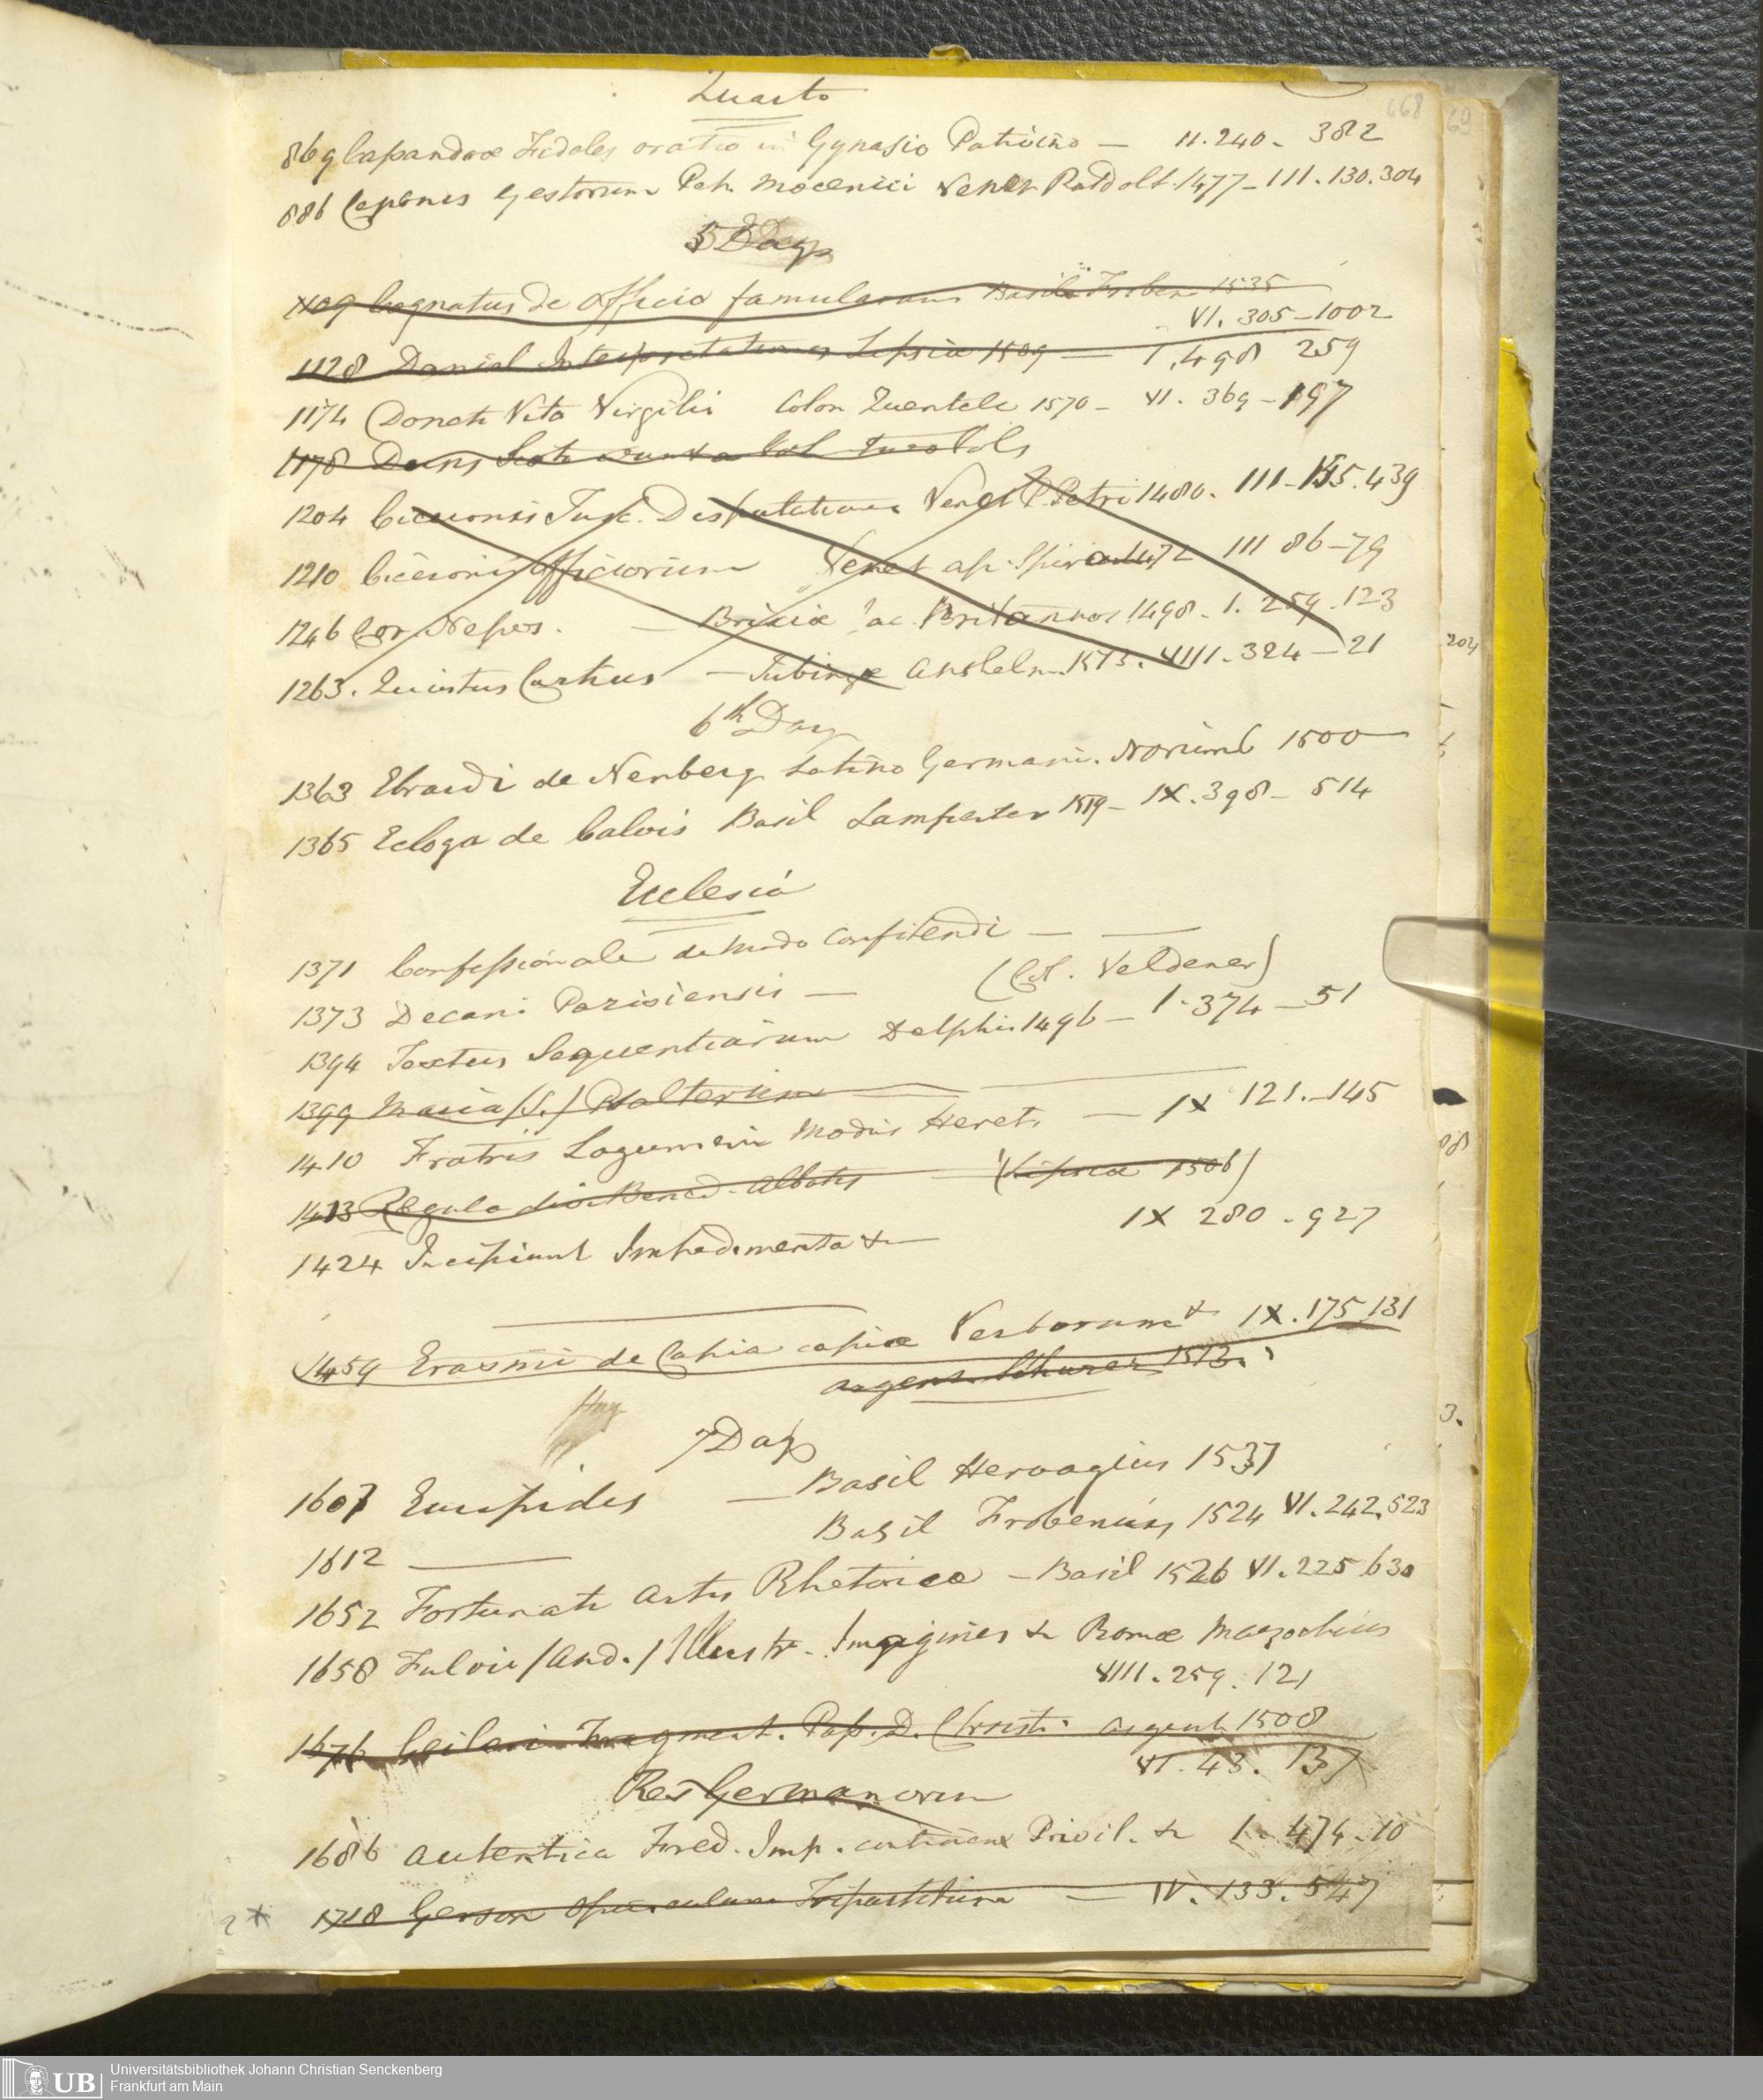 Quarto
468
69
869 Cassandræ Fideles oratio in Gynasio Pativino — 11. 240 - 382
886 Cepionis Gestorum Petr Mocenici Venet Ratdolt 1477 - 111. 130. 304
5 Day
1109 Cognatus de officio famularum Basil Froben 1535
VI. 305 - 1002
1128 Daniel Interpretationes Lipsiæ 1509 — 1. 498 259
1174 Donati Vita Virgilii Colon Quentele 1570 - VI. 369 - 197
1178 Duns Scoti
1204 Ciceronis Tusc. Disputationes Venet P. Petri 1480. 111 - 155. 439
1210 Ciceronis Officiorum Venet ap. Spiram 1472 111 86 - 79
1246 Cor. Nepos. — Brixiæ Jac. Britannos 1498 - 1. 259. 123
1263. Quintus Curtius — Tubingæ Anshelm 1513. VIII. 324 - 21
204
6th Day
1363 Ebrardi de Nenberg Latino Germani. Norimb 1500 —
1365 Ecloga de Calvis Basil Lamparter 1519 - IX. 398 - 514
Ecclesia
1371 Confessionale de Modo Confitendi — —
1373 Decani Parisiensis — (Col. Veldener)
1394 Textus Sequentiarum Delphis 1496 - 1. 374 - 51
1399 Maria (S.) Psalterium —
1410 Fratris Modus Heret. — IX 121. - 145
1413 Regula divi Bened. Abbatis — (Lipsiæ 1506)
1424 Incipiunt Impedimenta & — IX 280 - 927
1459 Erasmi de Copia copiæ Verborum & IX. 175 131
Argent. Schurer 1513.
3.
7 Day
1607 Euripides — Basil Hervagius 1537
1612 — Basil Frobenius 1524 VI. 242. 523
1652 Fortunati Artis Rhetoricæ - Basil 1526 VI. 225 630
1658 Fulvii (And.) Illustr. Imagines & Romæ Mazochius
VIII. 259. 121
1676 Geilari Fragment. Pas. D. Christi Argent 1508
VI. 43. 137
Res Germanorum
1686 Autentica Fred. Imp. continens Privil. & 1. 474. 10
1718 Gerson Opusculum Tripartitum — IV. 133. 547
UB
Universitätsbibliothek Johann Christian Senckenberg
Frankfurt am Main